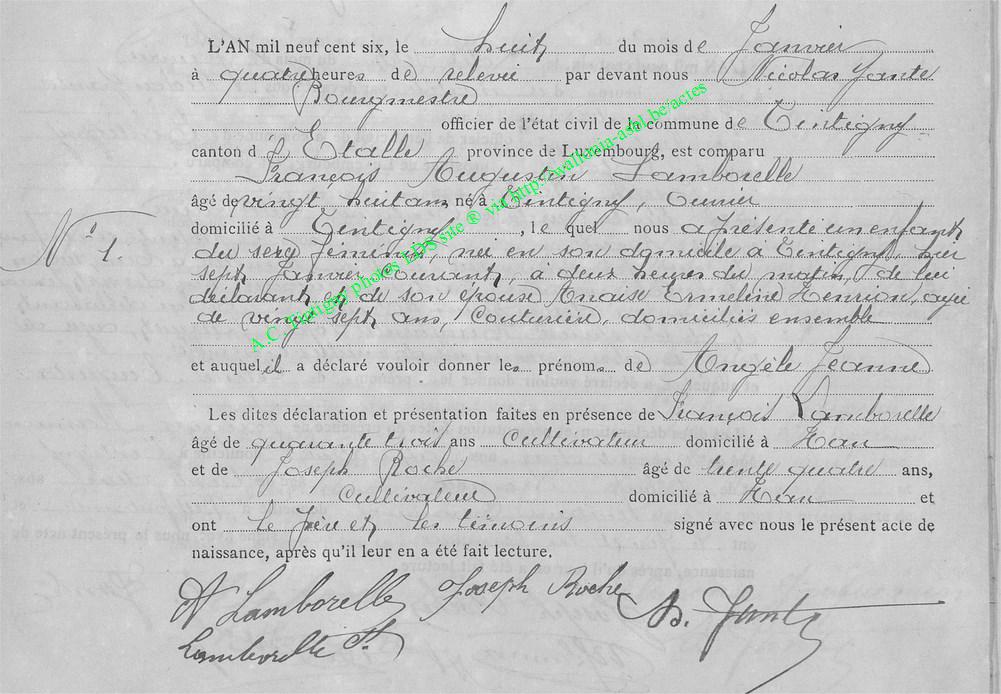 L'AN mil neuf cent six, le huit du mois de Janvier
à quatre heures de relevée par devant nous Nicolas Jante
Bourgmestre
officier de l'état civil de la commune de Tintigny
canton d Etalle province de Luxembourg, est comparu
François Augustin Lamborelle
âgé de vingt huit ans né à Tintigny, Ouvrier
domicilié à Tintigny, le quel nous a présenté un enfant
N° 1.
du sexe féminin, née en son domicile à Tintigny, hier
sept Janvier courant, à deux heures du matin, de lui
déclarant et de son épouse Anaïse Ermeline Henrion, agée
de vingt sept ans, Couturière, domiciliés ensemble
et auquel il a déclaré vouloir donner les prénoms de Angèle Jeanne
Les dites déclaration et présentation faites en présence de François Lamborelle
âgé de quarante trois ans Cultivateur domicilié à Han
et de Joseph Roche âgé de trente quatre ans,
Cultivateur domicilié à Han et
ont le père et les témoins signé avec nous le présent acte de
naissance, après qu'il leur en a été fait lecture.
A Lamborelle Joseph Roche
Lamborelle N. Jante
A.C. Tintigny photos LDS site ® via http:/wallonia-asbl.be/actes